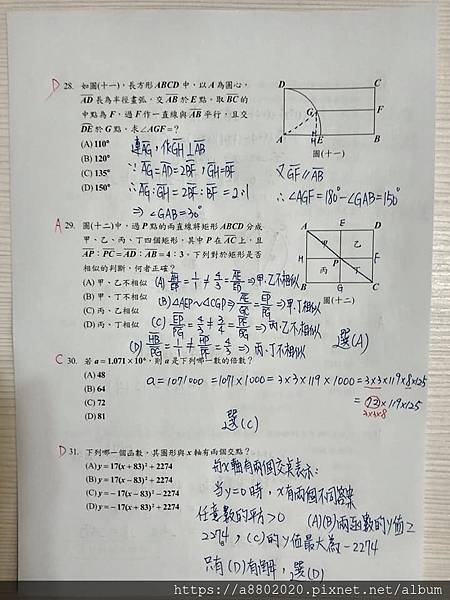 D 28. 如圖(十一)，長方形 ABCD 中，以 A 為圓心，
AD 長為半徑畫弧，交 AB 於 E 點。取 BC 的
中點為 F，過 F 作一直線與 AB 平行，且交
DE 於 G 點。求∠AGF=？
(A) 110°
(B) 120°
(C) 135°
(D) 150°
D C
G F
A H E B
圖(十一)
連AG，作GH⊥AB
∵ AG=AD=2BF，GH=BF
∴ AG:GH=2BF:BF=2:1
⇒ ∠GAB=30°
又GF∥AB
∴∠AGF=180°-∠GAB=150°
A 29. 圖(十二)中，過 P 點的兩直線將矩形 ABCD 分成
甲、乙、丙、丁四個矩形，其中 P 在 AC 上，且
AP：PC=AD：AB=4：3。下列對於矩形是否
相似的判斷，何者正確？
(A) 甲、乙不相似
(B) 甲、丁不相似
(C) 丙、乙相似
(D) 丙、丁相似
A E D
甲 乙
H P F
丙 丁
B G C
圖(十二)
⇒甲、乙不相似
(B) ∠AEP~∠CGP⇒
⇒甲丁相似
⇒ 丙、乙不相似
⇒ 丙、丁不相似
選(A)
C 30. 若 a=1.071×10⁶，則 a 是下列哪一數的倍數？
(A) 48
(B) 64
(C) 72
(D) 81
a=1071000=1071×1000=3×3×119×1000=3×3×119×8×125
=72×119×125
3×3×8
選(C)
D 31. 下列哪一個函數，其圖形與 x 軸有兩個交點？
(A) y=17(x+83)²+2274
(B) y=17(x-83)²+2274
(C) y=-17(x-83)²-2274
(D) y=-17(x+83)²+2274
與x軸有兩個交點表示：
當y=0時，x有兩個不同答案
任意數的平方>0 (A)(B)兩函數的y值≥
2274，(C)的y值最大為-2274
只有(D)有個解，選(D)
https://a8802020.pixnet.net/album